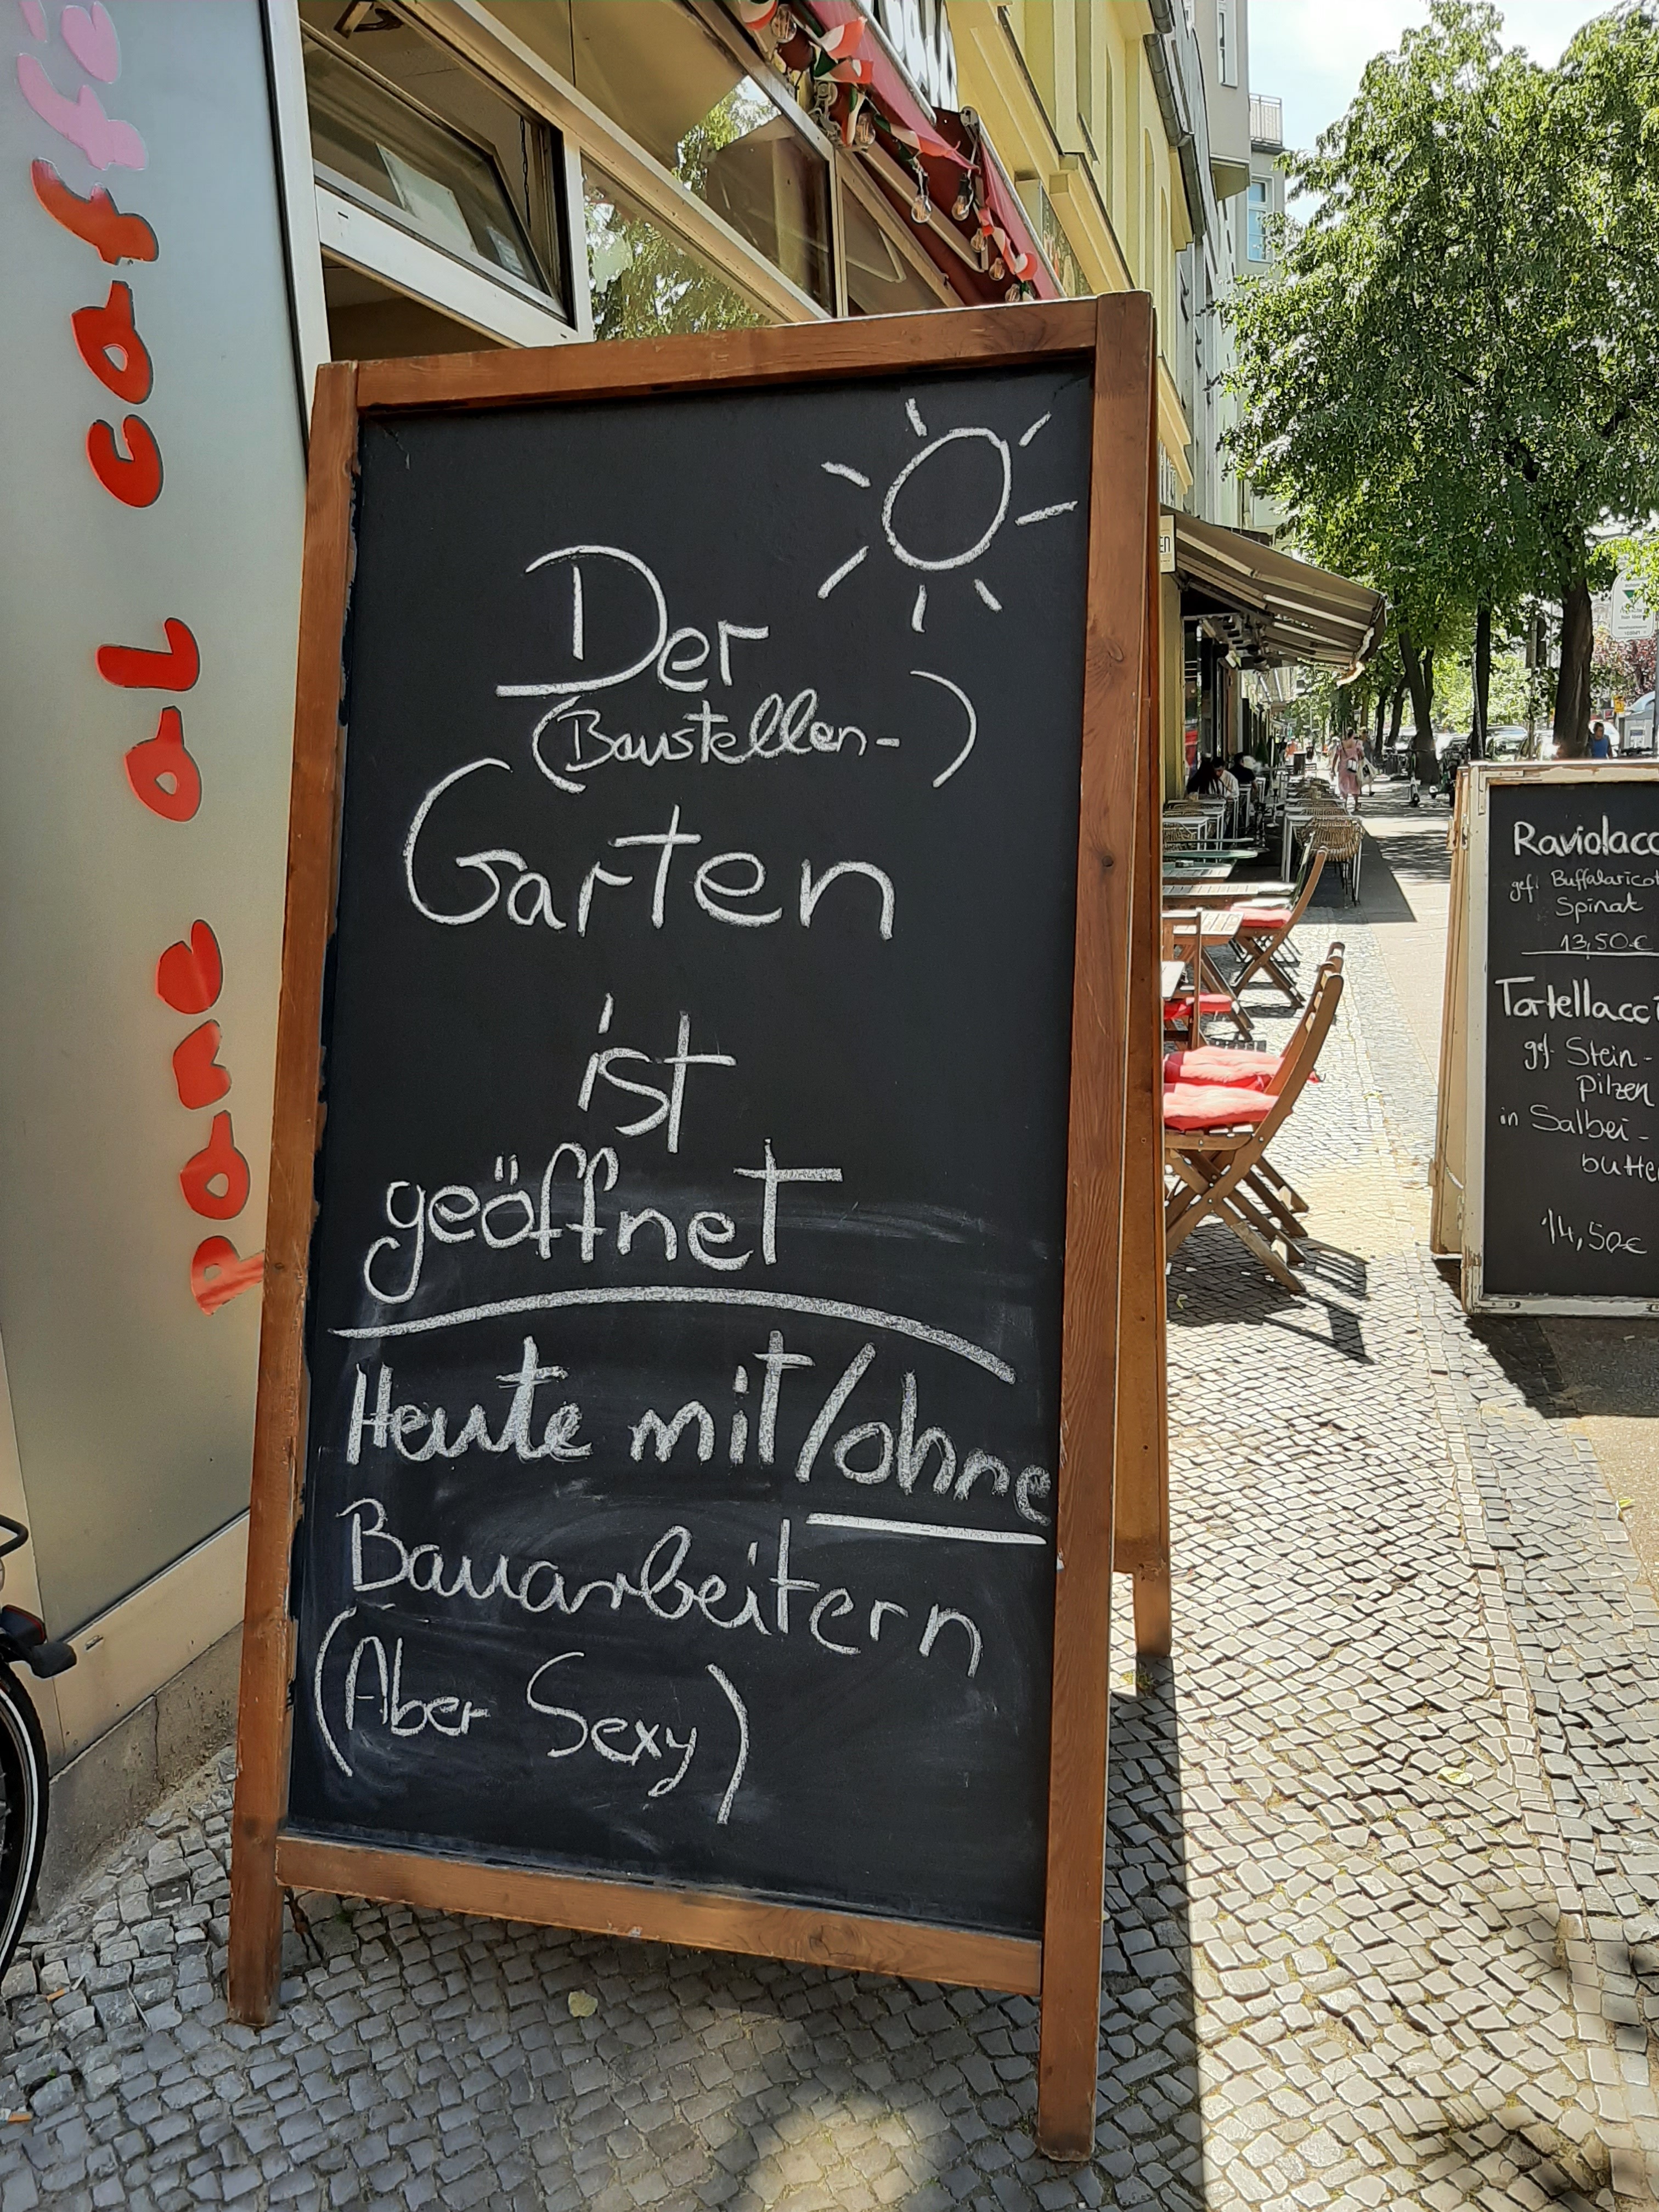 pane al caffè
Der
(Baustellen-)
Garten
ist
geöffnet
Heute mit/ohne
Bauarbeitern
(Aber Sexy)
Raviolacc
gef. Buffalaricot
Spinat
13,50€
Tortellacci
gef. Stein-
pilzen
in Salbei-
butte
14,50€
EN